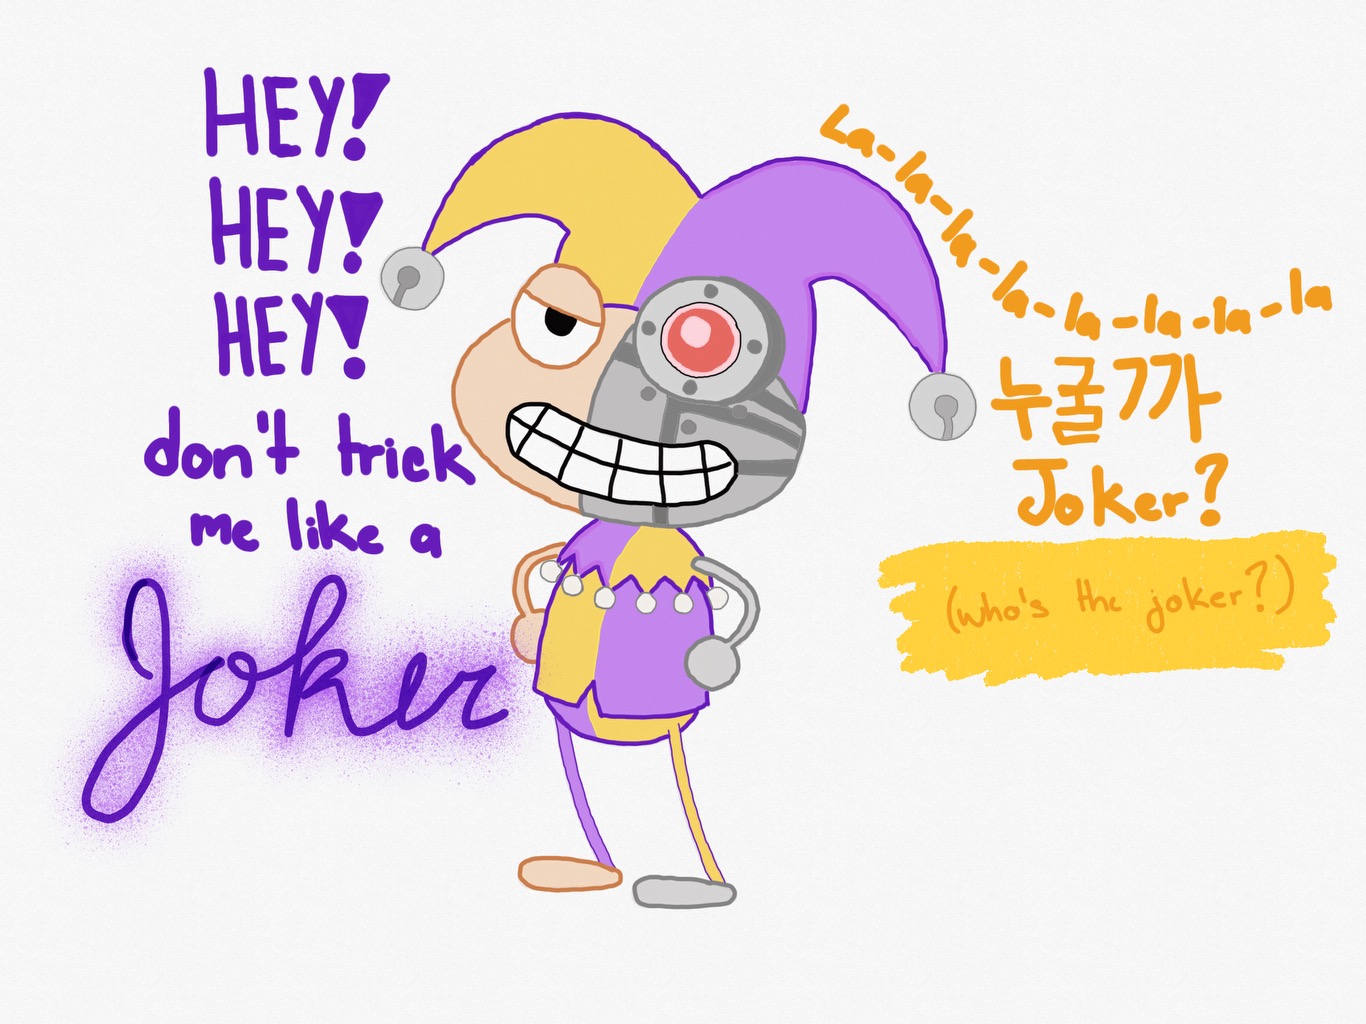 HEY!
HEY!
HEY!
don't trick
me like a
Joker
La-la-la-la-la-la-la-la
누굴까
Joker?
(who's the joker?)